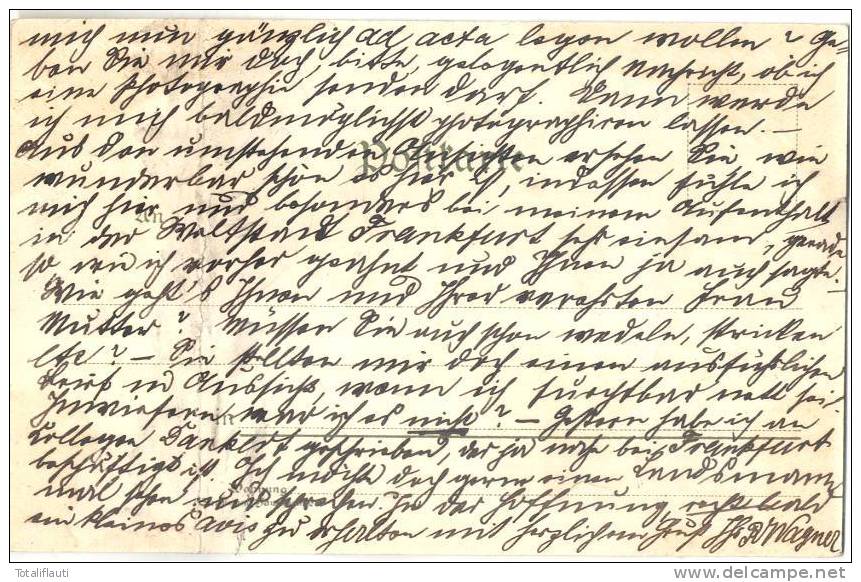 mich nun gänzlich ad acta legen wollen? Ge-
ben Sie mir doch, bitte, gelegentlich Nachricht, ob ich
eine Photographie senden darf. Dann werde
ich mich baldmöglichst photographieren lassen. –
Aus den umstehenden Ansichten ersehen Sie, wie
wunderbar schön es hier ist, indessen fühle ich
mich hier und besonders bei meinem Aufenthalt
in der Weltstadt Frankfurt sehr einsam, gerade
so wie ich vorher geahnt und Ihnen ja auch sagte. –
Wie geht's Ihnen und Ihrer verehrten Frau
Mutter? Müssen Sie auch schon wedeln, stricken
etc? – Sie stellten mir doch einen ausführlichen
in Aussicht, wenn ich furchtbar nett sei.
Inwiefern war ich es nicht? – Gestern habe ich an
Collegen Dankert geschrieben, der ja nahe bei Frankfurt
beschäftigt ist. Ich möchte doch gerne einen Landsmann
mal sehen und sprechen. In der Hoffnung, recht bald
ein kleines avis zu erhalten mit herzlichem Gruß Ihr R Wagner
Postkarte
An
in
Wohnung
Totaliflauti
delcampe.net